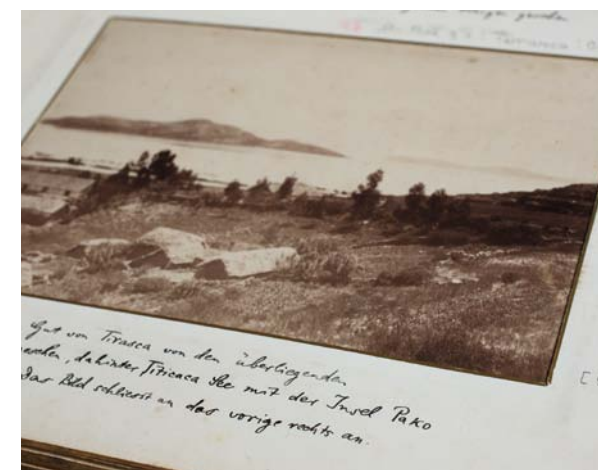 Gut von Tirasca von den überliegenden
gesehen, dahinter Titicaca See mit der Insel Pako
Das Bild schliesst an das vorige rechts an.